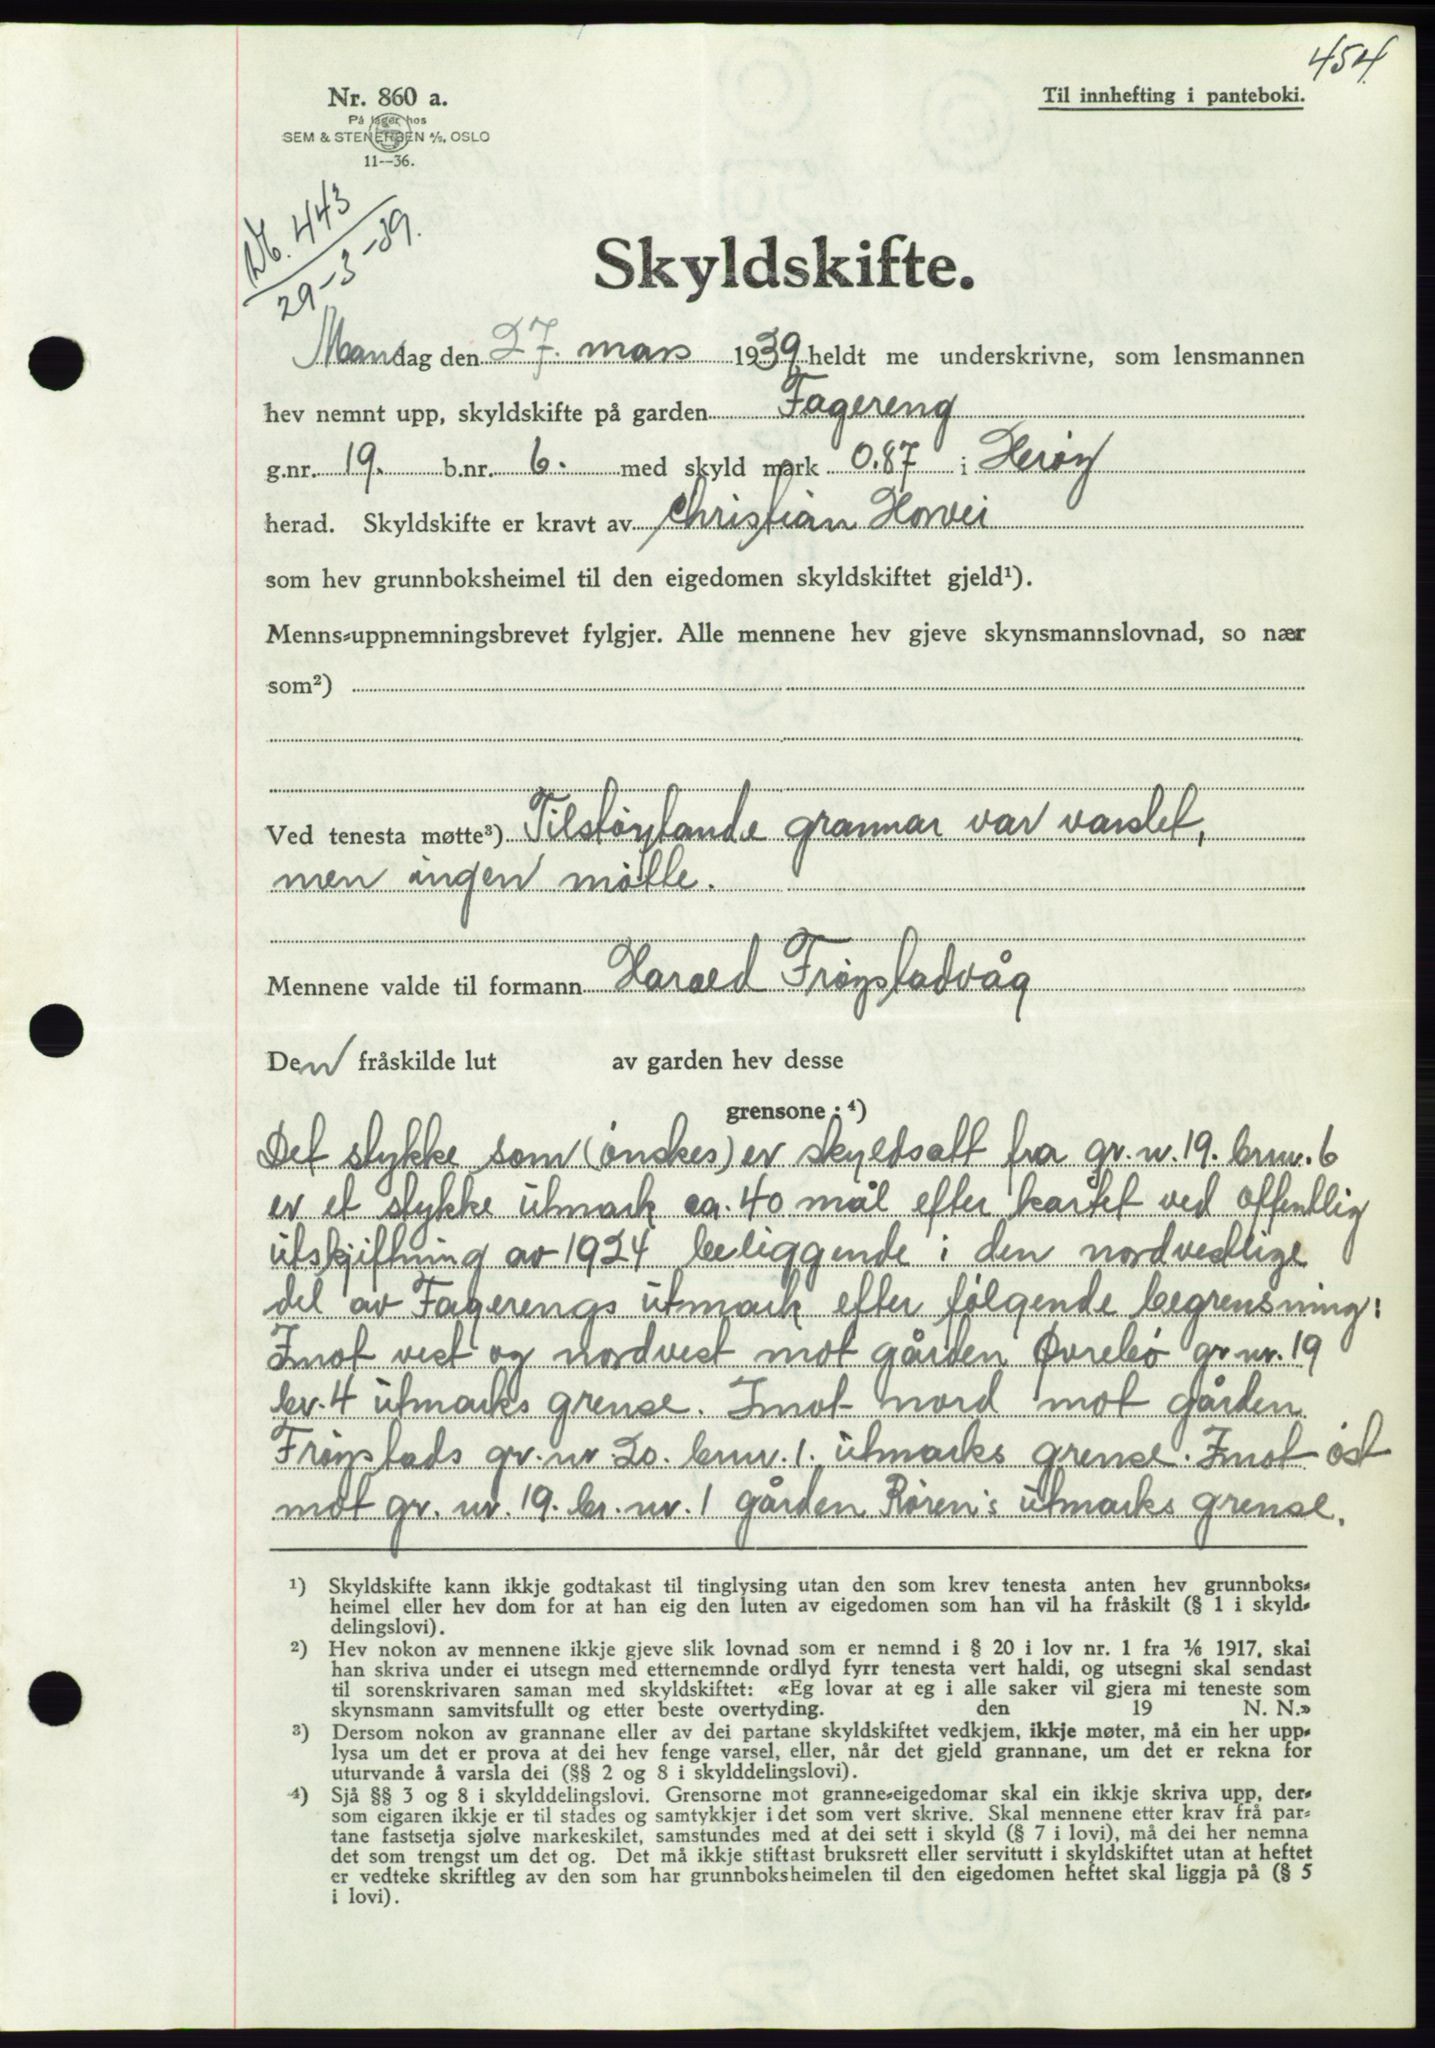 454.
Nr. 860 a.
Til innhefting i panteboki.
På lager hos
SEM & STENERSEN A/S, OSLO
11--36.
Nr. 443
29-3-39.
Skyldskifte.
Mandag den 27. mars 1939 heldt me underskrivne, som lensmannen
hev nemnt upp, skyldskifte på garden Fagereng
g.nr. 19. b.nr. 6. med skyld mark 0.87 i Herøy
herad. Skyldskifte er kravt av Christian Horvei
som hev grunnboksheimel til den eigedomen skyldskiftet gjeld¹).
Menns-uppnemningsbrevet fylgjer. Alle mennene hev gjeve skynsmannslovnad, so nær
som²)
Ved tenesta møtte³) Tilstøytande grannar var varslet,
men ingen møtte.
Mennene valde til formann Harald Frøystadvåg
Den fråskilde lut av garden hev desse
grensone: ⁴)
Det stykke som (ønskes) er skyldsatt fra gr.n. 19. brnr. 6
er et stykke utmark ca. 40 mål efter kartet ved offentlig
utskjiftning av 1924 beliggende i den nordvestlige
del av Fagerengs utmark efter følgende begrensning:
Imot vest og nordvest mot gården Øvrebø gr. nr. 19
br. 4 utmarks grense. Imot nord mot gården
Frøystads gr. nr 20. brnr. 1. utmarks grense. Imot øst
mot gr. nr. 19. br. nr. 1 gården Røren's utmarks grense.
¹) Skyldskifte kann ikkje godtakast til tinglysing utan den som krev tenesta anten hev grunnboks-
heimel eller hev dom for at han eig den luten av eigedomen som han vil ha fråskilt (§ 1 i skyld-
delingslovi).
²) Hev nokon av mennene ikkje gjeve slik lovnad som er nemnd i § 20 i lov nr. 1 fra ⅙ 1917, skal
han skriva under ei utsegn med etternemnde ordlyd fyrr tenesta vert haldi, og utsegni skal sendast
til sorenskrivaren saman med skyldskiftet: «Eg lovar at eg i alle saker vil gjera mi teneste som
skynsmann samvitsfullt og etter beste overtyding. den 19 N. N.»
³) Dersom nokon av grannane eller av dei partane skyldskiftet vedkjem, ikkje møter, må ein her upp-
lysa um det er prova at dei hev fenge varsel, eller, når det gjeld grannane, um det er rekna for
uturvande å varsla dei (§§ 2 og 8 i skylddelingslovi).
⁴) Sjå §§ 3 og 8 i skylddelingslovi. Grensorne mot granne-eigedomar skal ein ikkje skriva upp, der-
som eigaren ikkje er til stades og samtykkjer i det som vert skrive. Skal mennene etter krav frå par-
tane fastsetja sjølve markeskilet, samstundes med at dei sett i skyld (§ 7 i lovi), må dei her nemna
det som trengst um det og. Det må ikkje stiftast bruksrett eller servitutt i skyldskiftet utan at heftet
er vedteke skriftleg av den som har grunnboksheimelen til den eigedomen heftet skal liggja på (§ 5
i lovi).